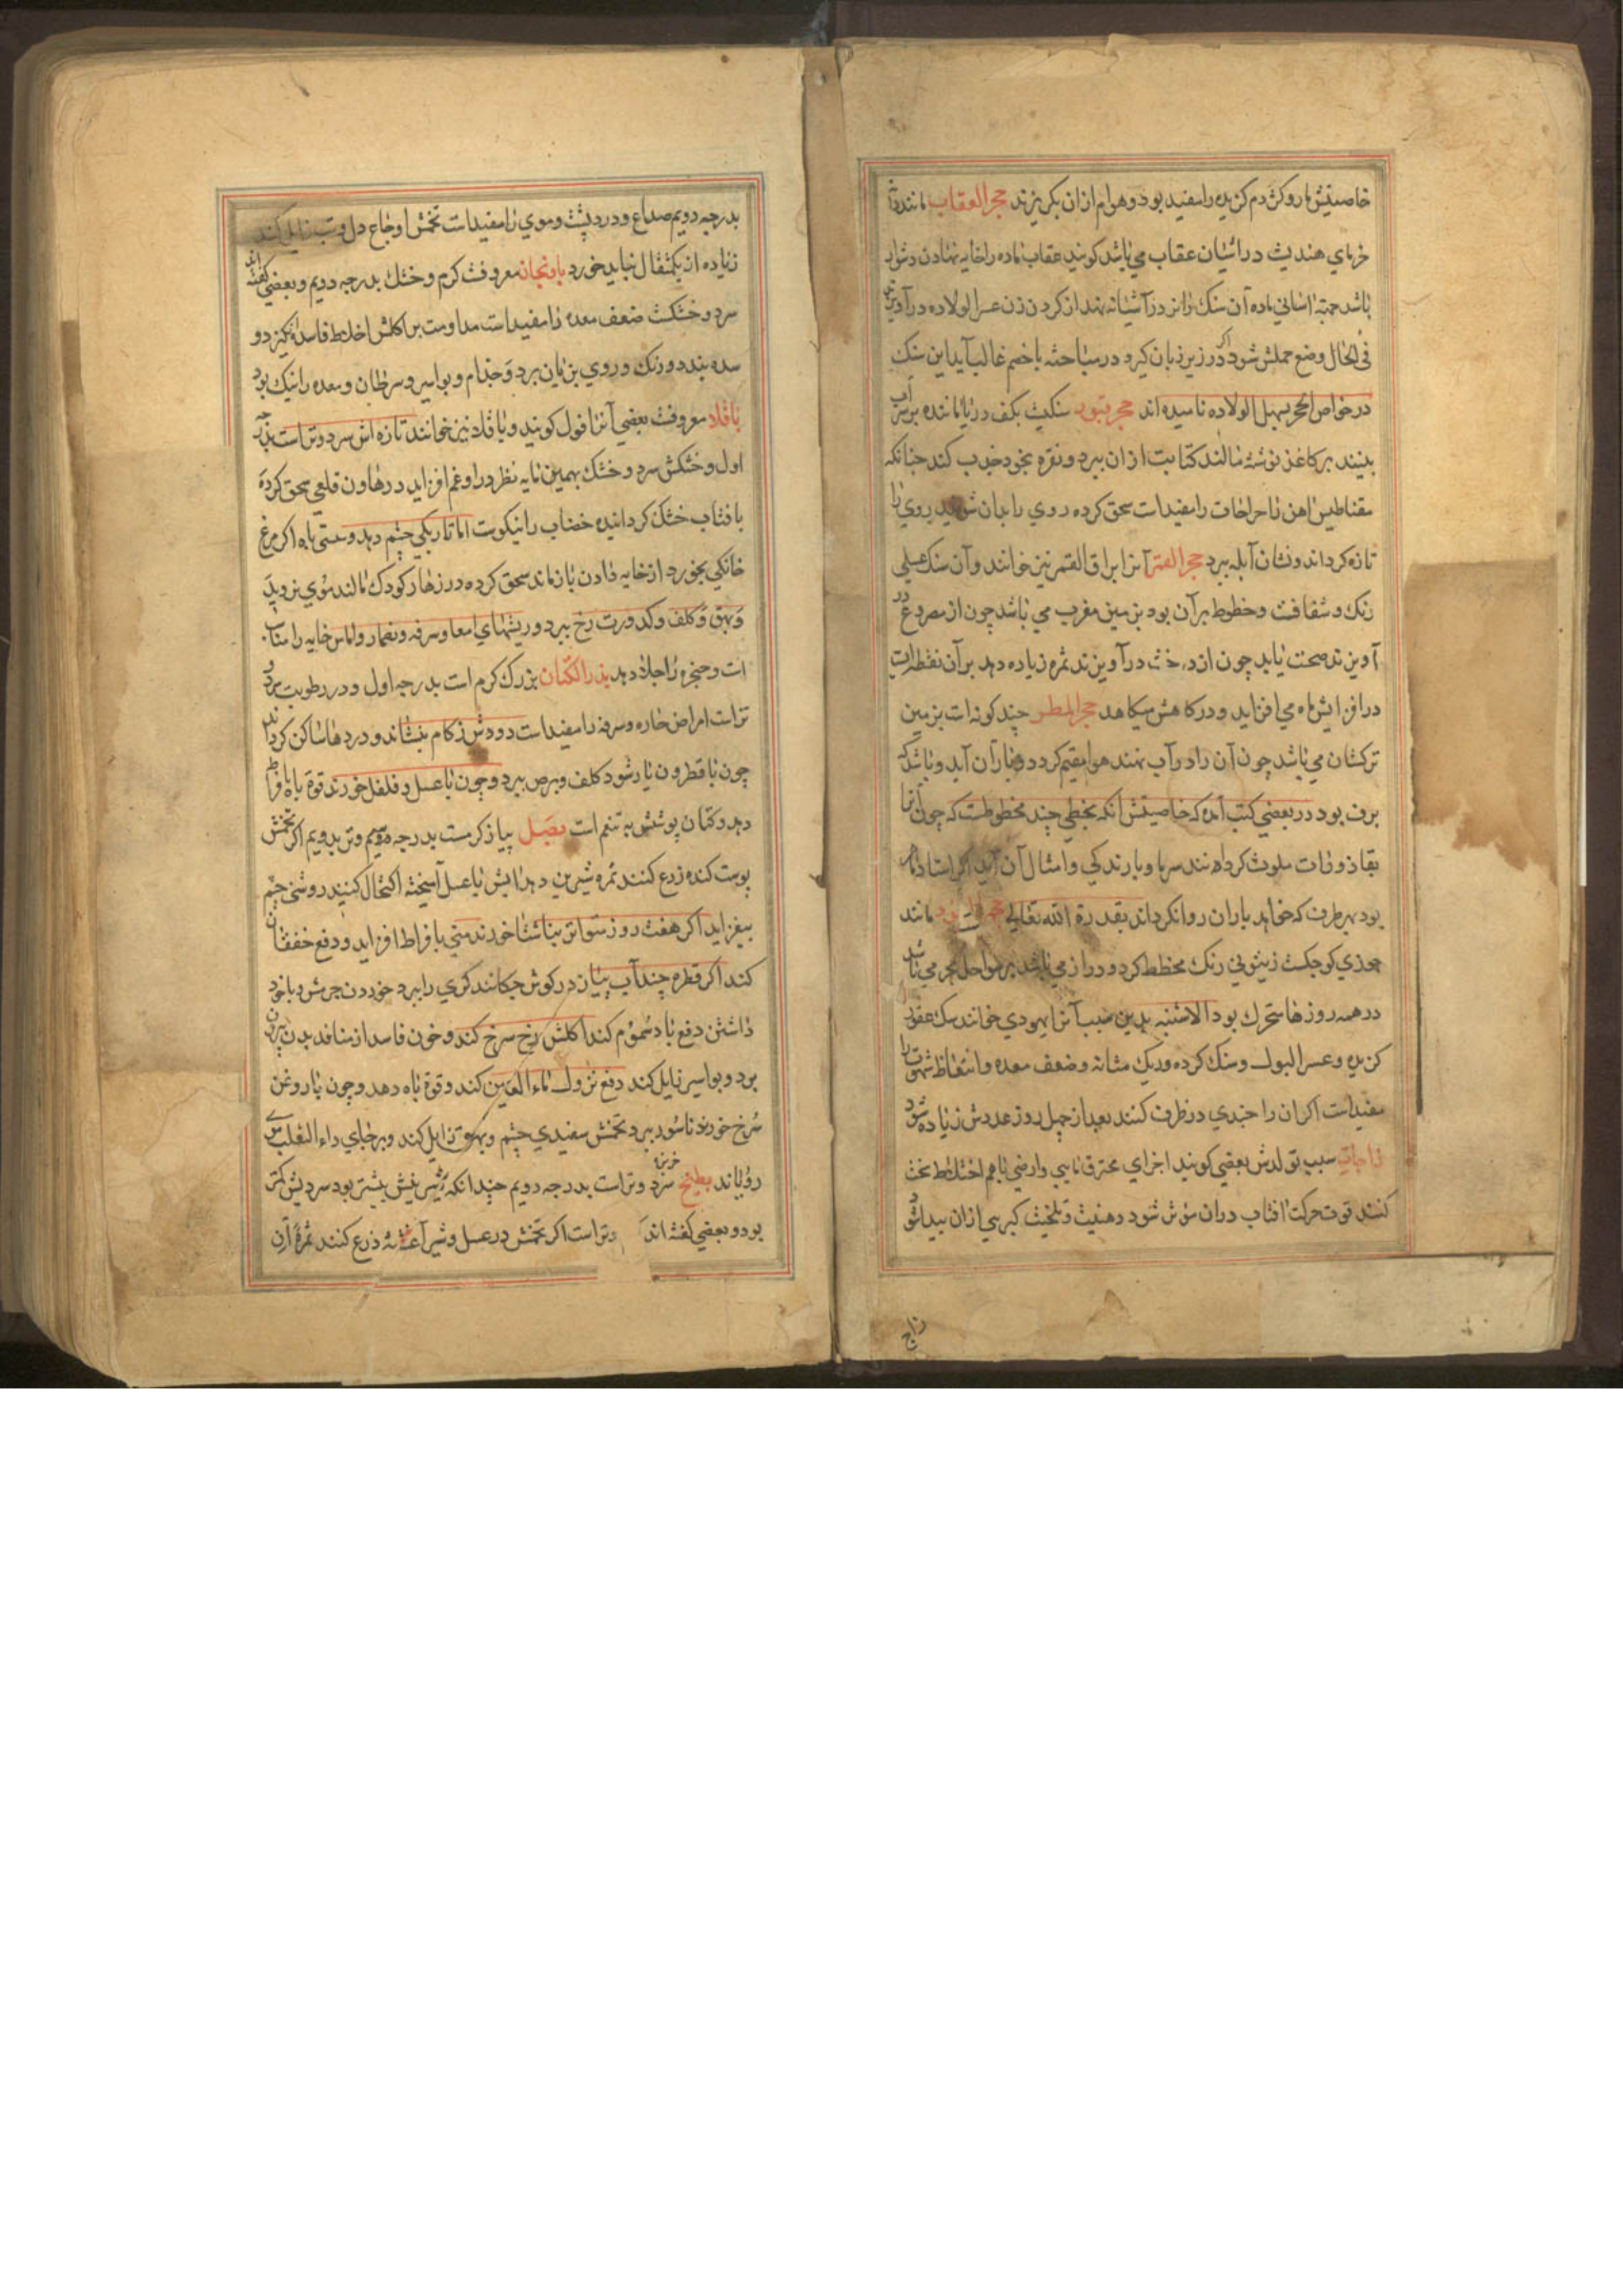 خاصیتش مار و کژدم کزیده را مفید بود و هوام ازان بکریزند حجر العقاب مانند دانه
خرمای هندیست در آشیان عقاب می باشد کویند عقاب ماده را خایه نهادن دشوار
باشد جهتة آسانی ماده آن سنک را نر در آشیانه نهد از کردن زن عسر الولاده در آویزند
فی الحال وضع حملش شود اکر در زیر زبان کیرد در مباحثه با خصم غالب آید این سنک
در خواص الحجر بهبل الولاده نامیده اند حجر قیور سنکیست بکف دریا مانده برسر آب
بینند بر کاغذ نوشته مالند کتابت ازان ببرد و نقره بخود جذب کند چنانکه
مقناطیس آهن را جراحات را مفیدست سحق کرده روی را بدان شویند روی را
تازه کرداند و نشان آبله ببرد حجر القمر آنرا براق القمر نیز خوانند و آن سنک عسلی
رنک و شفافست و خطوط بر آن بود بزمین مغرب می باشد چون از مصروع در
آویزند صحت یابد چون از درخت در آویزند ثمره زیاده دهد بر آن نقطه است
در افزایش ماه می افزاید و در کاهش میکاهد حجر المطر چند کونه است بزمین
ترکستان می باشد چون آن را در آب نهند هوا مقیم کردد و باران آید و باشد که
برف بود در بعضی کتب آمده که خاصیتش انکه بخطی چند مخطوطست که چون آنرا
بقاذورات ملوث کردانند سرما و بارندکی و امثال آن آید اکر استاد ماهر
بود بهر طرف که خواهد باران روانکرداند بقدرة الله تعالی حجر الیهود مانند
جوزی کوچکست زیتونی رنک مخطط کرد و دراز می باشد بر سواحل بحر می باشد
در همه روزها متحرک بود الا شنبه بدین سبب آنرا یهودی خوانند سک عقور
کزیده و عسر البول و سنک کرده و ریک مثانه و ضعف معده و انتعاظ شهوت را
مفیدست اکر ان را چندی در ظرف کنند بعد از چهل روز عددش زیاده شود
زاجات سبب تولدش بعضی کویند اجزای محترق نایبی و ارضی باهم اختلاط سخت
کنند قوت حرکت افتاب دران مؤثر شود دهنیت و ملحیت کبریتی ازان پیدا شود
زاج
بدرجه دویم صداع و درد پشت و موی را مفیدست تخمش اوجاع دل و تب زایل کند
زیاده از یکمثقال نباید خورد بادنجان معروفست کرم و خشک بدرجه دویم و بعضی کفته اند
سرد و خشکست ضعف معده را مفیدست مداومت بر اکلش اخلاط فاسده انکیزد و
سده بندد و رنک و روی بزیان برد و جذام و بواسیر و سرطان و معده را نیک بود
باقلا معروفست بعضی آنرا فول کویند و باقلا نیز خوانند تازه اش سرد و ترست بدرجه
اول و خشکش سرد و خشک بهمین پایه نظر در او غم افزاید در هاون قلعی سحق کرده
بافتاب خشک کردانیده خضاب را نیکوست اما تاریکی چشم دهد و سستی باه اکر مرغ
خانکی بخورد از خایه دادن باز ماند سحق کرده در زهار کودک مالند موی نروید
و بهق و کلف و کدورت رخ ببرد و ریشهای امعا و سرفه و ضماد و آماس خایه را مناسب
است و حنجره را جلا دهد بذر الکتان بزرک کرم است بدرجه اول و در رطوبت سرد و
ترست امراض حاره و سرفه را مفیدست دودش زکام بنشاند و دردها ساکن کرداند
چون با قطرون یار شود کلف و برص ببرد و چون با عسل و فلفل خورند قوة باه بافراط
دهد و کتان پوشش به تنعم است بصل پیاز کرمست بدرجه سیم و تر بدویم اکر تخمش
پوست کنده زرع کنند ثمره شیرین دهد آبش با عسل آمیخته اکتحال کنند روشنی چشم
بیفزاید اکر هفت روز متواتر بناشتا خورند منی بافراط افزاید و دفع خفقان
کند اکر قطره چند آب پیاز در کوش چکانند کری را ببرد خوردن جرمش و باخود
داشتن دفع باد سموم کند اکلش رخ سرخ کند و خون فاسد از منافذ بدن بیرون
برد و بواسیر زایل کند دفع نزول ماء العین کند و قوة باه دهد و چون با روغن
سرخ خورند ناسور ببرد تخمش سفیدی چشم و بهق زایل کند و بر جای داء الثعلب موی
رویاند بطیخ خربزه سرد و ترست بدرجه دویم چندانکه شیرینیش بیشتر بود سردیش کمتر
بود و بعضی کفته اند و ترست اکر تخمش در عسل و شیر آغشته ذرع کنند ثمره آن